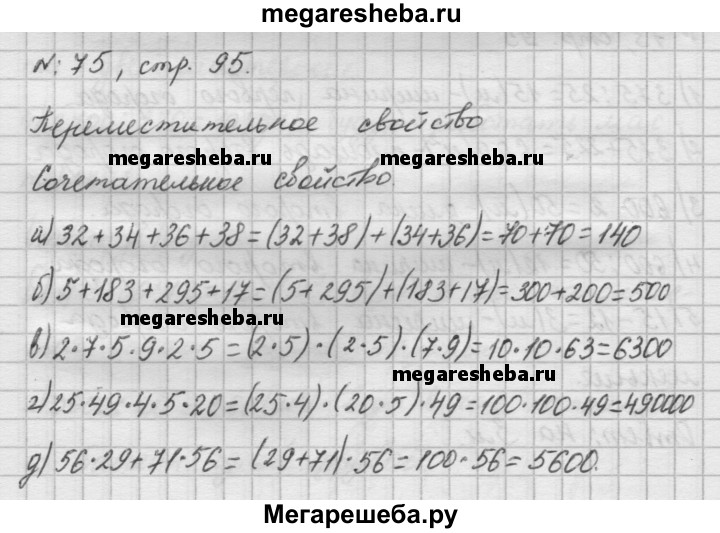 megaresheba.ru
№: 75, стр. 95.
Переместительное свойство
megaresheba.ru megaresheba.ru
Сочетательное свойство.
а) 32+34+36+38=(32+38)+(34+36)=70+70=140
б) 5+183+295+17=(5+295)+(183+17)=300+200=500
megaresheba.ru
в) 2·7·5·9·2·5=(2·5)·(2·5)·(7·9)=10·10·63=6300
megaresheba.ru
г) 25·49·4·5·20=(25·4)·(20·5)·49=100·100·49=490000
д) 56·29+71·56=(29+71)·56=100·56=5600.
Мегарешеба.ру